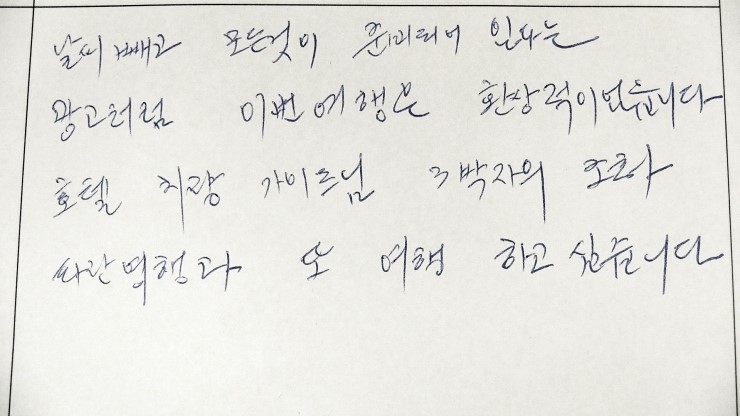 날씨 빼고 모든것이 준비되어 있다는
광고처럼 이번여행은 환상적이었습니다
호텔 차량 가이드님 3박자의 조화
싸란여행과 또 여행 하고 싶습니다